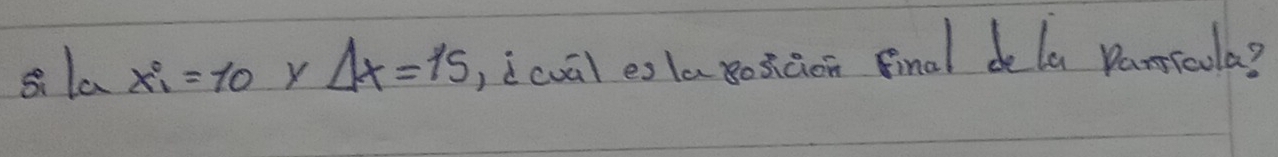 si la xi = 10 y Δx = 15, ¿cuál es la posición final de la partícula?